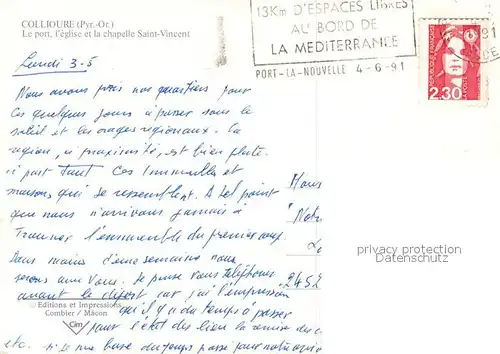 COLLIOURE (Pyr.-Or.)
Le port, l'église et la chapelle Saint-Vincent
13Km D'ESPACES LIBRES
AU BORD DE
LA MEDITERRANEE
PORT-LA-NOUVELLE 4-6-91
91
REPUBLIQUE FRANÇAISE
LA POSTE
2,30
Lundi 3-5
Nous avons pris nos quartiers pour
ces quelques jours à passer sous le
soleil et les orages régionaux. La
région, à proximité, est bien plate.
à part tout ces immeubles et
maisons qui se ressemblent. A tel point
que nous n'arrivons jamais à
trouver l'ensemble du premier coup.
Dans moins d'une semaine nous
serons avec vous. Je pense vous téléphoner
avant le départ car j'ai l'impression
qu'il y a du temps à passer
pour l'état des lieux la remise des
etc. du temps passé pour notre
2452
protected copyright
Datenschutz
© Editions et Impressions
Combier / Mâcon
Cim